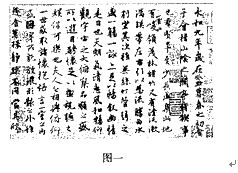 永和九年歲在癸丑暮春之初會
于會稽山陰之蘭亭脩稧事
也羣賢畢至少長咸集此地
有峻領茂林脩竹又有清流激
湍暎帶左右引以為流觴曲水
列坐其次雖無絲竹管弦之
盛一觴一詠亦足以暢敘幽情
是日也天朗氣清惠風和暢仰
觀宇宙之大俯察品類之盛
所以遊目騁懷足以極視聽之
娛信可樂也夫人之相與俯仰
一世或取諸懷抱悟言一室之內
或因寄所託放浪形骸之外雖
趣舍萬殊靜躁不同當其欣
图一